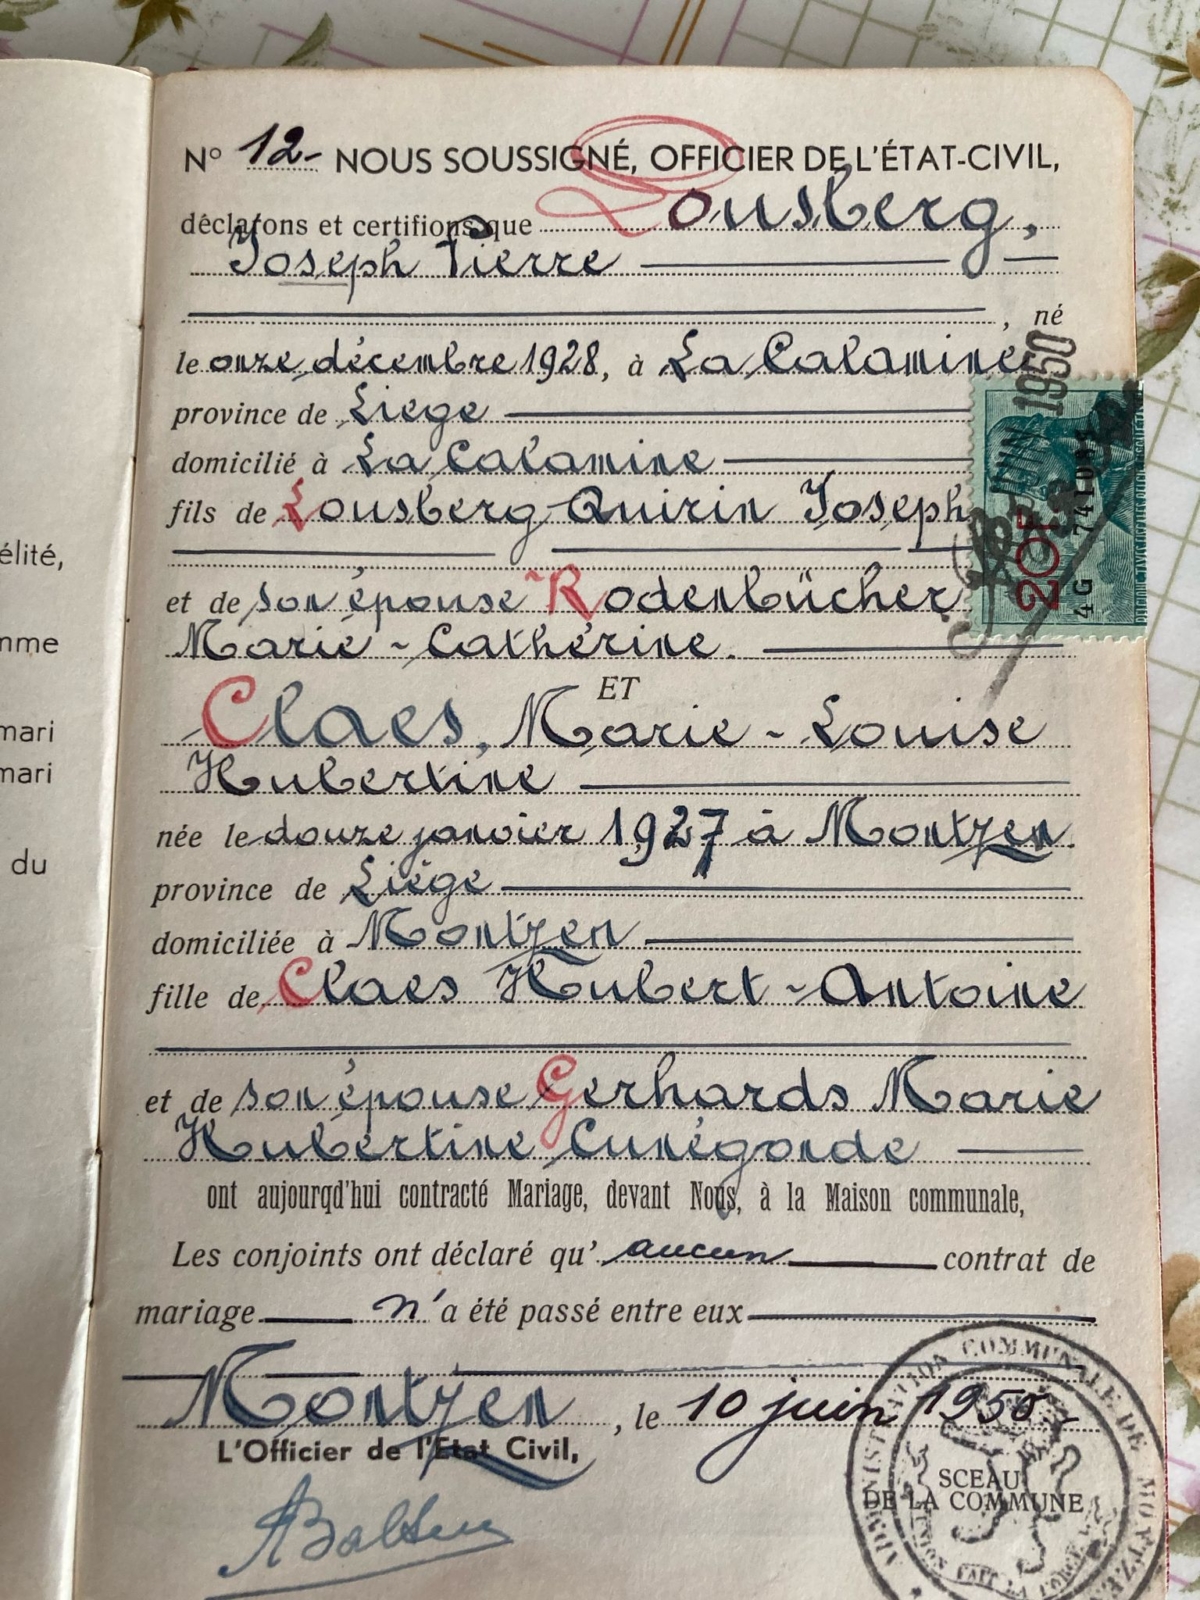 N° 12- NOUS SOUSSIGNÉ, OFFICIER DE L'ÉTAT-CIVIL,
déclarons et certifions que Lousberg,
Joseph Pierre
, né
le onze décembre 1928, à La Calamine
province de Liège
domicilié à La Calamine
fils de Lousberg Quirin Joseph
et de son épouse Rodenbücher
Marie-Cathérine.
ET
Claes, Marie-Louise
Hubertine
née le douze janvier 1927 à Montzen.
province de Liége
domiciliée à Montzen
fille de Claes Hubert-Antoine
et de son épouse Gerhards Marie
Hubertine Cunégonde
ont aujourqd'hui contracté Mariage, devant Nous, à la Maison communale,
Les conjoints ont déclaré qu' aucun contrat de
mariage n'a été passé entre eux
Montzen, le 10 juin 1950
L'Officier de l'Etat Civil,
ABaltus
SCEAU
DE LA COMMUNE
ADMINISTRATION COMMUNALE DE MONTZEN
L'UNION FAIT LA FORCE
JUIN 1950
20F
4G
élité,
mme
mari
mari
du